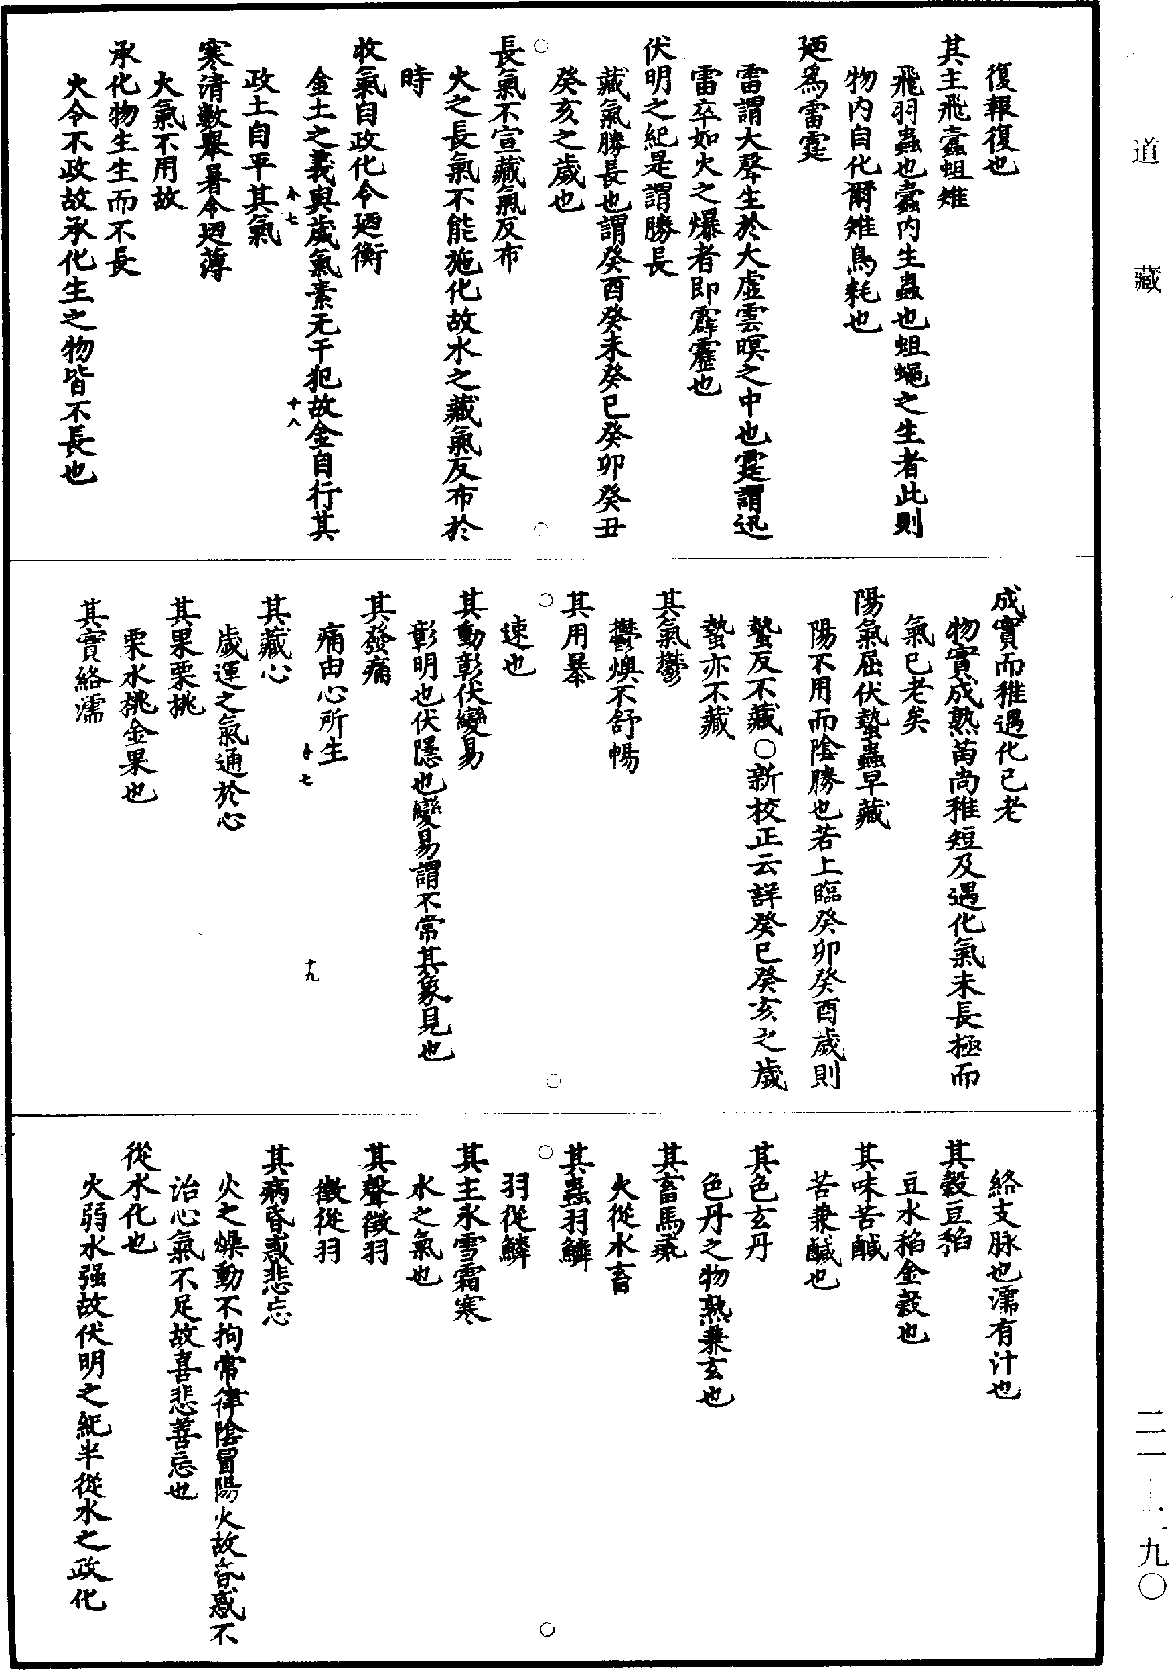 道藏
復報復也
其主飛蠹蛆雉
飛羽蟲也蠹內生蟲也蛆蠅之生者此則
物內自化爾雉鳥耗也
廼為雷霆
雷謂大聲生於大虛雲暝之中也霆謂迅
雷卒如火之爆者即霹靂也
伏明之紀是謂勝長
藏氣勝長也謂癸酉癸未癸巳癸卯癸丑
癸亥之歲也
長氣不宣藏氣反布
火之長氣不能施化故水之藏氣反布於
時
收氣自政化令廼衡
金土之義與歲氣素无干犯故金自行其
政土自平其氣
寒清數舉暑令廼薄
火氣不用故
承化物生生而不長
火令不政故承化生之物皆不長也
成實而稚遇化已老
物實成熟苗尚稚短及遇化氣未長極而
氣已老矣
陽氣屈伏蟄蟲早藏
陽不用而陰勝也若上臨癸卯癸酉歲則
蟄反不藏○新校正云詳癸巳癸亥之歲
蟄亦不藏
其氣鬱
鬱燠不舒暢
其用暴
速也
其動彰伏變易
彰明也伏隱也變易謂不常其象見也
其發痛
痛由心所生
其藏心
歲運之氣通於心
其果栗桃
栗水桃金果也
其實絡濡
絡支脉也濡有汁也
其穀豆稻
豆水稻金穀也
其味苦鹹
苦兼鹹也
其色玄丹
色丹之物熟兼玄也
其畜馬彘
火從水畜
其蟲羽鱗
羽從鱗
其主氷雪霜寒
水之氣也
其聲徵羽
徵從羽
其病昏惑悲忘
火之燥動不拘常律陰冒陽火故昏惑不
治心氣不足故喜悲善忘也
從水化也
火弱水强故伏明之紀半從水之政化